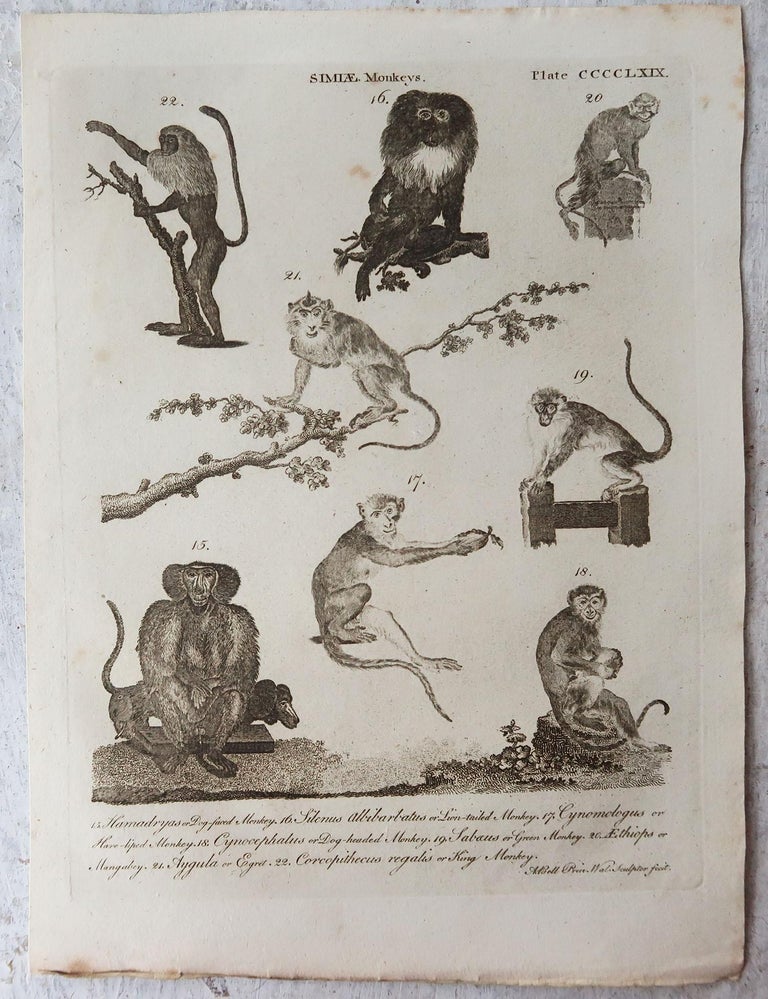 SIMIÆ. Monkeys. Plate CCCCLXIX.
22. 16. 20
21.
19.
17.
15.
18.
15. Hamadryas or Dog-faced Monkey. 16. Silenus Albibarbatus or Lion-tailed Monkey. 17. Cynomologus or
Hare-liped Monkey. 18. Cynocephalus or Dog-headed Monkey. 19. Sabæus or Green Monkey. 20. Æthiops or
Mangabey. 21. Aygula or Egret. 22. Corcopithecus regalis or King Monkey.
A. Bell Prin. Wal. Sculptor fecit.